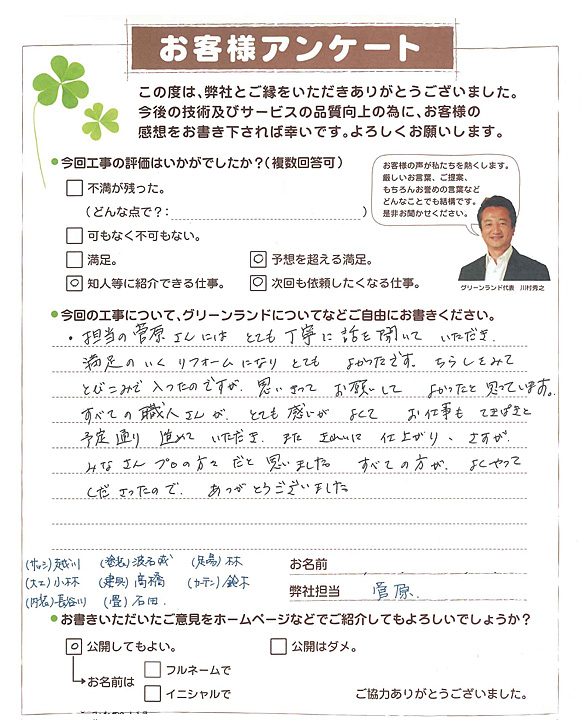 お客様アンケート
この度は、弊社とご縁をいただきありがとうございました。
今後の技術及びサービスの品質向上の為に、お客様の
感想をお書き下されば幸いです。よろしくお願いします。
●今回工事の評価はいかがでしたか?(複数回答可)
不満が残った。
(どんな点で?: )
可もなく不可もない。
満足。
予想を超える満足。
知人等に紹介できる仕事。
次回も依頼したくなる仕事。
お客様の声が私たちを熱くします。
厳しいお言葉、ご提案、
もちろんお誉めの言葉など
どんなことでも結構です。
是非お聞かせください。
グリーンランド代表 川村秀之
●今回の工事について、グリーンランドについてなどご自由にお書きください。
・担当の菅原さんには とても丁寧に話を聞いて いただき.
満足のいくリフォームになり とても よかったです。ちらしをみて
とびこみで入ったのですが. 思いきって お願いして よかったと思っています。
すべての職人さんが、とても感じが よくて お仕事も てきぱきと
予定通り 進めて いただき. また きれいに 仕上がり、さすが.
みなさん プロの方々 だと 思いました すべての方が. よくやって
くださったので. ありがとうございました
(サッシ)越川 (巻名) (足場)林
(大工)小林 (建具)高橋 (カーテン)鈴木
(内装)長谷川 (畳)石田.
お名前
弊社担当 菅原.
●お書きいただいたご意見をホームページなどでご紹介してもよろしいでしょうか?
公開してもよい。
公開はダメ。
お名前は
フルネームで
イニシャルで
ご協力ありがとうございました。